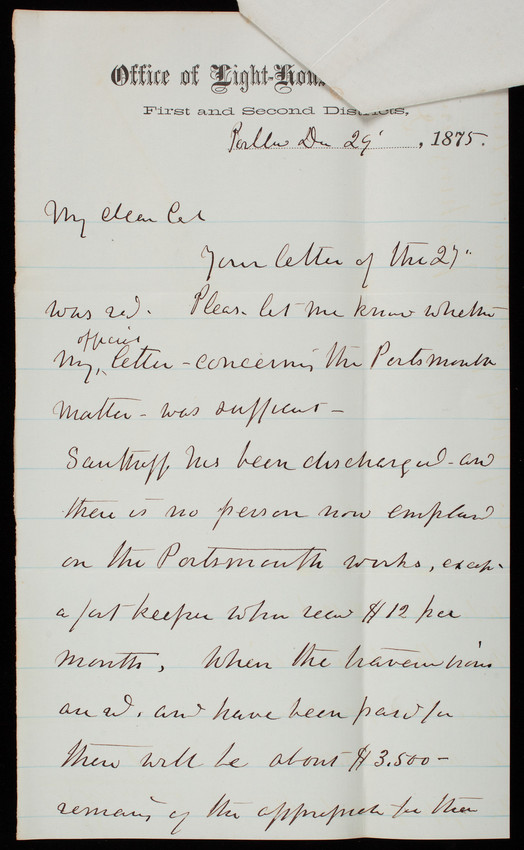 Office of Light-Hous
First and Second Districts,
Dec 29, 1875.
My dear Col
Your letter of the 27"
was rcd. Please let me know whether
official
my letter - concerning the Portsmouth
matter - was sufficient -
has been discharged - and
there is no person now employed
on the Portsmouth works, except
a fort keeper who recs $12 per
month. When the
are rcd. and have been paid for
there will be about $3.500 -
remaing of the appropriatn for the